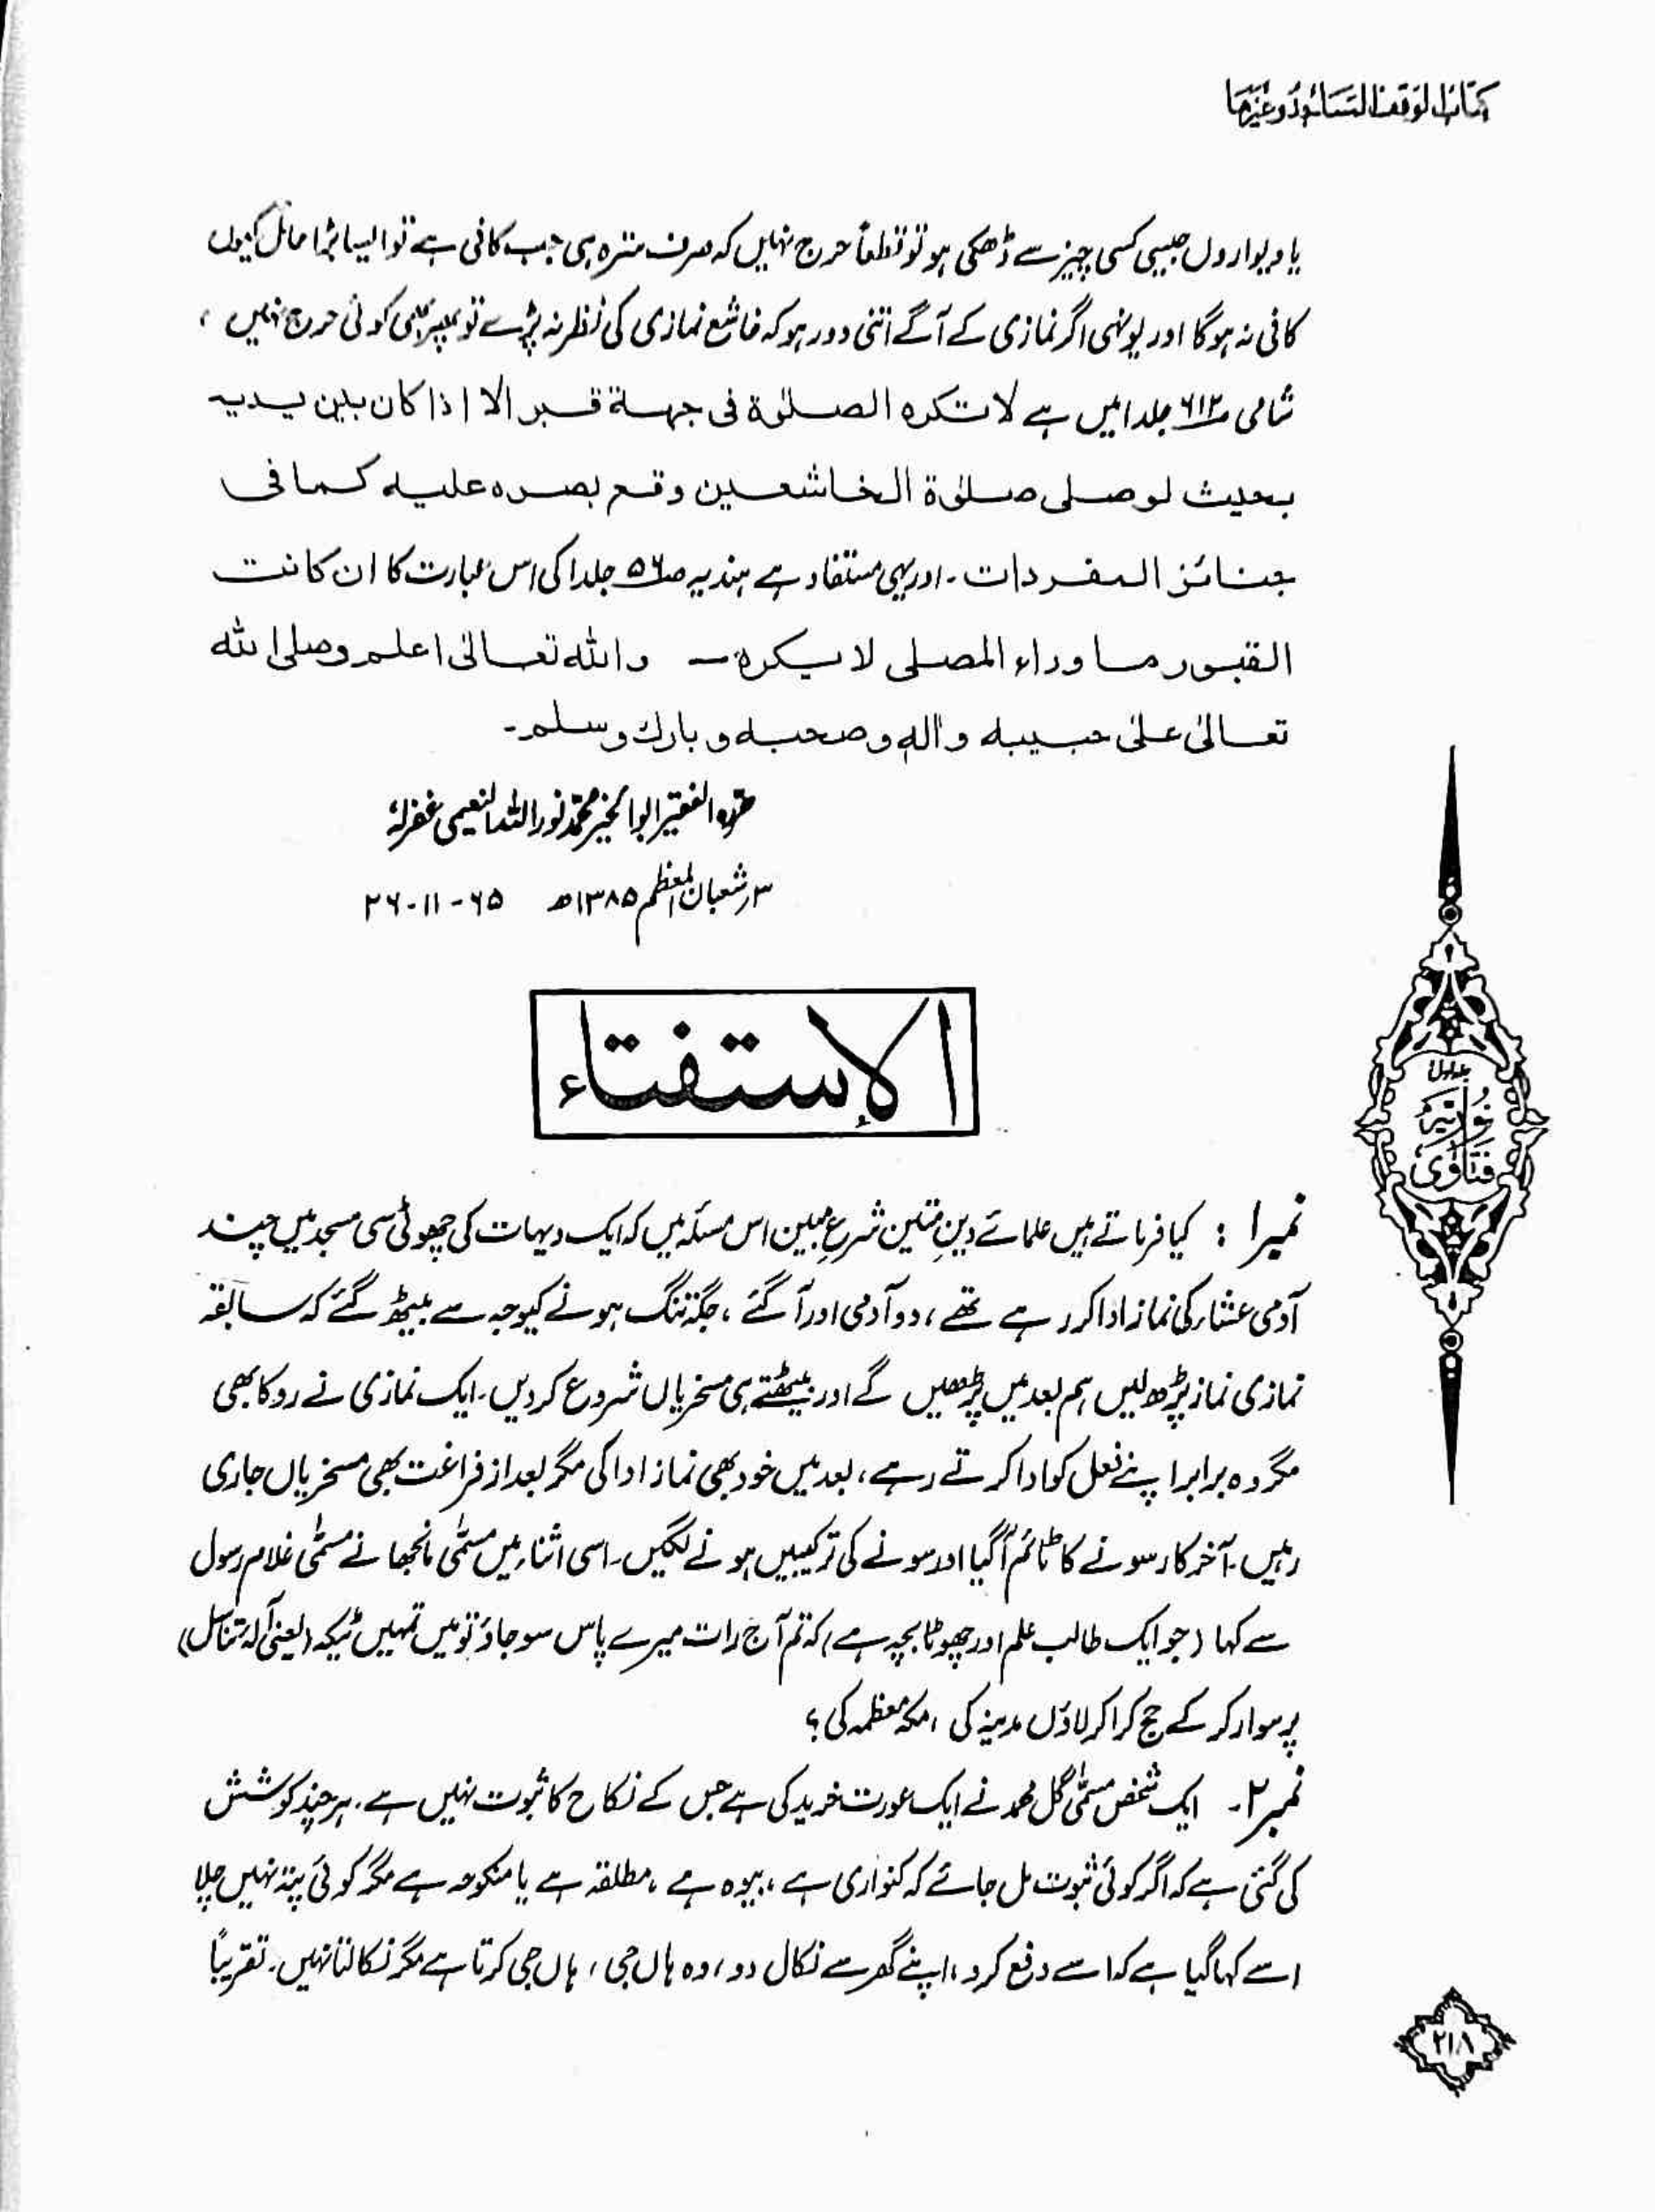 کتاب الوقف المساجد وغیرہا
یا دیواروں جیسی کسی چیز سے ڈھکی ہو تو قطعاً حرج نہیں کہ صرف سترہ ہی جب کافی ہے تو ایسا بڑا حائل کیوں
کافی نہ ہوگا اور یونہی اگر نمازی کے آگے اتنی دور ہو کہ خاشع نمازی کی نظر نہ پڑے تو پھر بھی کوئی حرج نہیں ،
شامی ص۶۱۲ جلد۱ میں ہے لا تکرہ الصلوٰۃ فی جہۃ قبر الا اذا کان بین یدیہ
بحیث لو صلی صلوٰۃ الخاشعین وقع بصرہ علیہ کما فی
جنائز المفردات ۔ اور یہی مستفاد ہے ہندیہ ص۵۶ جلد۱ کی اس عبارت کا ان کانت
القبور ما وراء المصلی لا یکرہ — واللہ تعالیٰ اعلم وصلی اللہ
تعالیٰ علیٰ حبیبہ واٰلہٖ وصحبہ وبارک وسلم۔
حررہ الفقیر ابوالخیر محمد نور اللہ النعیمی غفرلہٗ
۳ر شعبان المعظم ۱۳۸۵ھ ۶۵-۱۱-۲۶
الاستفتاء
نمبر۱ : کیا فرماتے ہیں علمائے دینِ متین شرعِ مبین اس مسئلہ میں کہ ایک دیہات کی چھوٹی سی مسجد میں چند
آدمی عشاء کی نماز ادا کر رہے تھے ، دو آدمی اور آ گئے ، جگہ تنگ ہونے کیوجہ سے بیٹھ گئے کہ سابقہ
نمازی نماز پڑھ لیں ہم بعد میں پڑھیں گے اور بیٹھتے ہی مسخریاں شروع کر دیں ۔ ایک نمازی نے روکا بھی
مگر وہ برابر اپنے فعل کو ادا کرتے رہے ، بعد میں خود بھی نماز ادا کی مگر بعد از فراغت بھی مسخریاں جاری
رہیں ۔ آخر کار سونے کا ٹائم آ گیا اور سونے کی ترکیبیں ہونے لگیں ۔ اسی اثناء میں مسمّٰی مانجھا نے مسمّٰی غلام رسول
سے کہا (جو ایک طالب علم اور چھوٹا بچہ ہے) کہ تم آج رات میرے پاس سو جاؤ تو میں تمہیں ٹیکہ (یعنی آلۂ تناسل)
پر سوار کر کے حج کرا کر لاؤں مدینہ کی ، مکہ معظمہ کی ؟
نمبر۲۔ ایک شخص مسمّٰی گل محمد نے ایک عورت خرید کی ہے جس کے نکاح کا ثبوت نہیں ہے ، ہر چند کوشش
کی گئی ہے کہ اگر کوئی ثبوت مل جائے کہ کنواری ہے ، بیوہ ہے ، مطلقہ ہے یا منکوحہ ہے مگر کوئی پتہ نہیں چلا
اسے کہا گیا ہے کہ اسے دفع کرو ، اپنے گھر سے نکال دو ، وہ ہاں جی ، ہاں جی کرتا ہے مگر نکالتا نہیں ۔ تقریباً
جلد اول
فتاوٰی نوریہ
۲۱۸